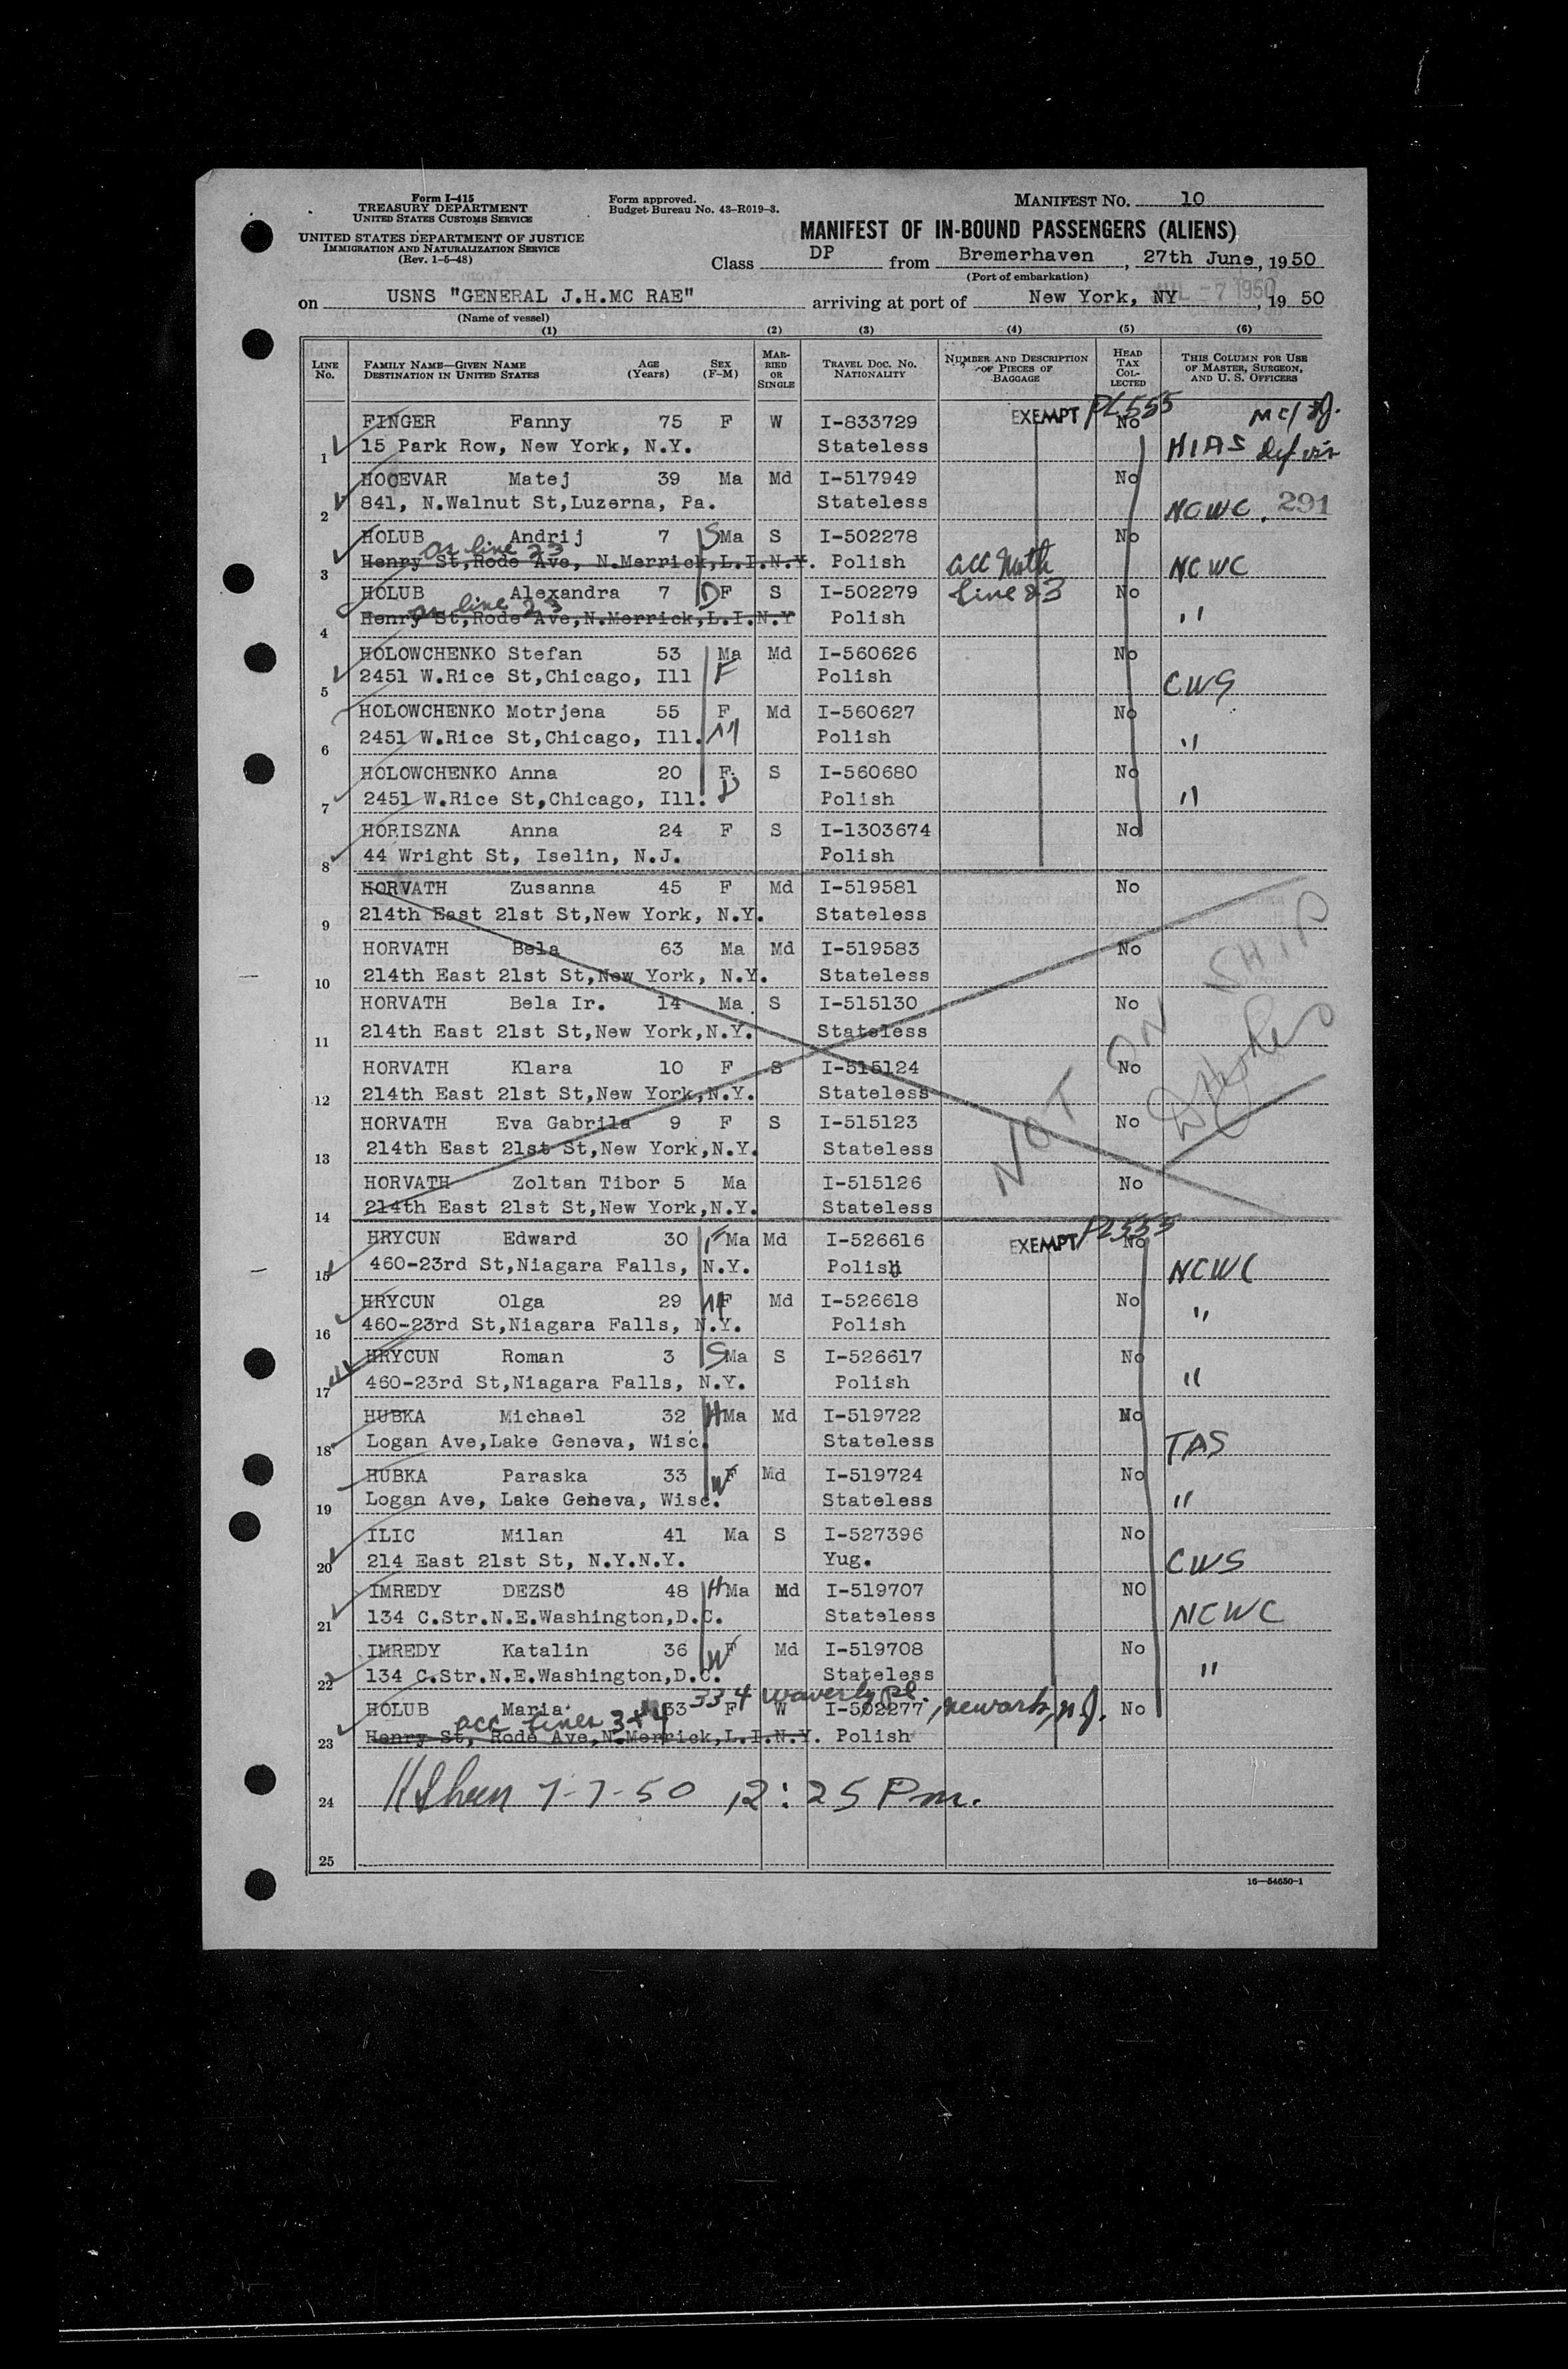 Form I-415
TREASURY DEPARTMENT
UNITED STATES CUSTOMS SERVICE
UNITED STATES DEPARTMENT OF JUSTICE
IMMIGRATION AND NATURALIZATION SERVICE
(Rev. 1-5-48)
Form approved.
Budget Bureau No. 43-R019-3.
MANIFEST NO. 10
MANIFEST OF IN-BOUND PASSENGERS (ALIENS)
Class DP from Bremerhaven, 27th June, 1950
(Port of embarkation)
on USNS "GENERAL J.H.MC RAE" arriving at port of New York, NY, 19 50
JUL -7 1950
(Name of vessel)
(1) (2) (3) (4) (5) (6)
LINE NO. FAMILY NAME—GIVEN NAME DESTINATION IN UNITED STATES AGE (Years) SEX (F-M) MARRIED OR SINGLE TRAVEL DOC. NO. NATIONALITY NUMBER AND DESCRIPTION OF PIECES OF BAGGAGE HEAD TAX COLLECTED THIS COLUMN FOR USE OF MASTER, SURGEON, AND U. S. OFFICERS
FINGER Fanny 75 F W I-833729 EXEMPT PL555 No
1 15 Park Row, New York, N.Y. Stateless HIAS
HOCEVAR Matej 39 Ma Md I-517949 No
2 841, N.Walnut St,Luzerna, Pa. Stateless NCWC 291
HOLUB Andrij 7 S Ma S I-502278 No
as line 23
3 Henry St,Rode Ave, N.Merrick,L.I.N.Y. Polish acc Moth NCWC
HOLUB Alexandra 7 D F S I-502279 line 23 No
as line 23
4 Henry St,Rode Ave,N.Merrick,L.I.N.Y Polish "
HOLOWCHENKO Stefan 53 Ma Md I-560626 No
5 2451 W.Rice St,Chicago, Ill F Polish CWS
HOLOWCHENKO Motrjena 55 F Md I-560627 No
6 2451 W.Rice St,Chicago, Ill. M Polish "
HOLOWCHENKO Anna 20 F. S I-560680 No
7 2451 W.Rice St,Chicago, Ill. D Polish "
HORISZNA Anna 24 F S I-1303674 No
8 44 Wright St, Iselin, N.J. Polish
HORVATH Zusanna 45 F Md I-519581 No
9 214th East 21st St,New York, N.Y. Stateless
HORVATH Bela 63 Ma Md I-519583 No
10 214th East 21st St,New York, N.Y. Stateless
HORVATH Bela Ir. 14 Ma S I-515130 No
11 214th East 21st St,New York,N.Y. Stateless
HORVATH Klara 10 F S I-515124 No
12 214th East 21st St,New York,N.Y. Stateless
HORVATH Eva Gabrila 9 F S I-515123 No
13 214th East 21st St,New York,N.Y. Stateless
HORVATH Zoltan Tibor 5 Ma I-515126 No
14 214th East 21st St,New York,N.Y. Stateless
NOT ON SHIP
HRYCUN Edward 30 F Ma Md I-526616 EXEMPT PL555 No
15 460-23rd St,Niagara Falls, N.Y. Polish NCWC
HRYCUN Olga 29 M F Md I-526618 No
16 460-23rd St,Niagara Falls, N.Y. Polish "
HRYCUN Roman 3 S Ma S I-526617 No
17 460-23rd St,Niagara Falls, N.Y. Polish "
HUBKA Michael 32 H Ma Md I-519722 No
18 Logan Ave,Lake Geneva, Wisc. Stateless TAS
HUBKA Paraska 33 W F Md I-519724 No
19 Logan Ave, Lake Geneva, Wisc. Stateless "
ILIC Milan 41 Ma S I-527396 No
20 214 East 21st St, N.Y.N.Y. Yug. CWS
IMREDY DEZSÖ 48 H Ma Md I-519707 NO
21 134 C.Str.N.E.Washington,D.C. Stateless NCWC
IMREDY Katalin 36 W F Md I-519708 No
22 134 C.Str.N.E.Washington,D.C. Stateless "
334 Waverly Pl., Newark, N.J.
HOLUB Maria 33 M F W I-502277 No
acc lines 3+4
23 Henry St, Rode Ave,N.Merrick,L.I.N.Y. Polish
24 7-7-50 12:25 Pm.
25
16—54650-1